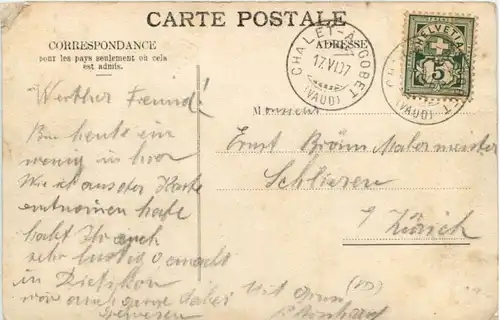 CARTE POSTALE
CORRESPONDANCE
pour les pays seulement où cela
est admis.
ADRESSE
CHALET-A-GOBET
17.VI.07
(VAUD)
HELVETIA
5
(VAUD)
Monsieur
Werther Freund!
Bin heute ein
wenig in hier
Wie ich aus der Karte
entnomen habe
habt Ihr euch
sehr lustig gemacht
in Dietikon
wäre auch gerne dabei
gewesen
Mit Gruss
Ernst Malermeister
Schlieren
Zürich